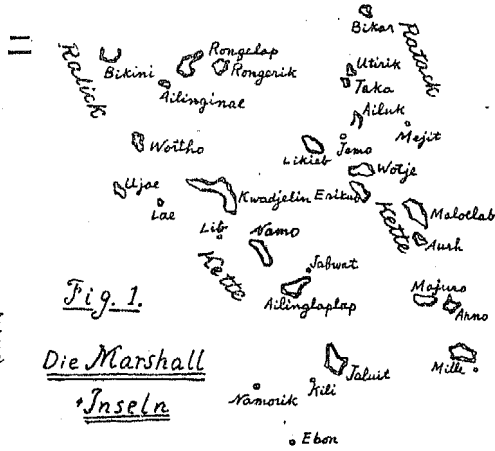 Bikar
Ratack
Ralick
Bikini
Rongelap
Rongerik
Ailinginal
Utirik
Taka
Ailuk
Mejit
Jemo
Likieb
Wotje
Wottho
Ujae
Lae
Kwadjelin
Erikub
Kette
Maloelab
Aurh
Lib
Namo
Kette
Jabwat
Ailinglaplap
Majuro
Arno
Fig. 1.
Die Marshall
Inseln
Jaluit
Mille
Namorik
Kili
Ebon